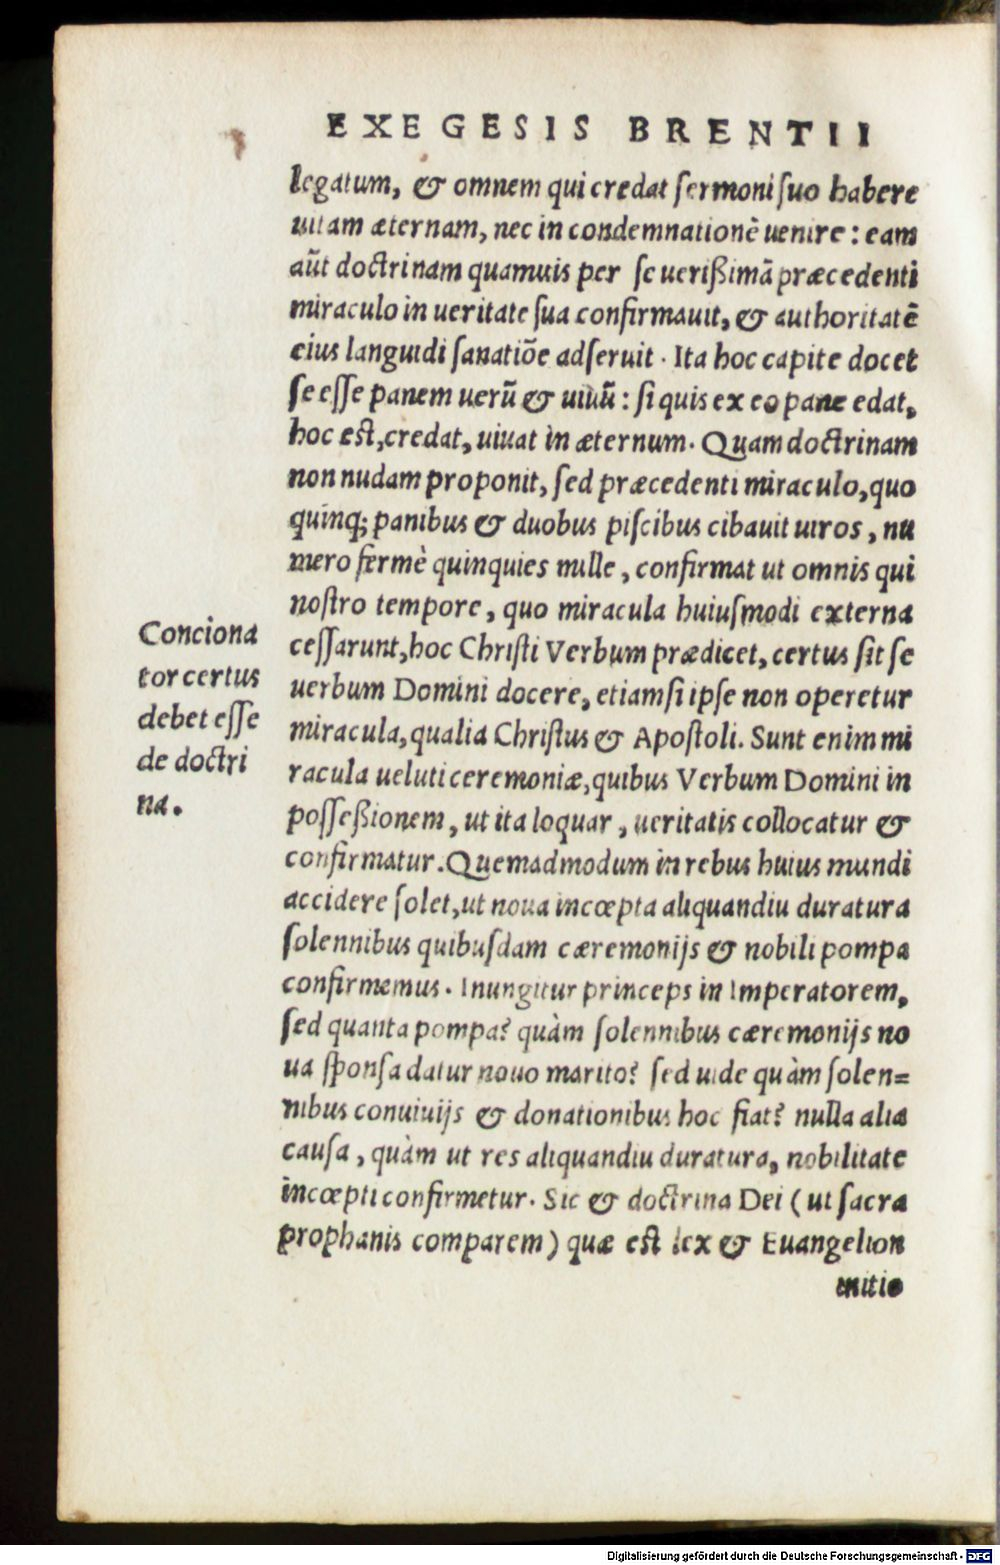 EXEGESIS BRENTII
legatum, & omnem qui credat ſermoni ſuo habere
uitam æternam, nec in condemnationē uenire : eam
aūt doctrinam quamuis per ſe ueriſsimā præcedenti
miraculo in ueritate ſua confirmauit, & authoritatē
eius languidi ſanatiōe adſeruit . Ita hoc capite docet
ſe eſſe panem uerū & uiuū : ſi quis ex eo pane edat,
hoc eſt, credat, uiuat in æternum. Quam doctrinam
non nudam proponit, ſed præcedenti miraculo, quo
quinq; panibus & duobus piſcibus cibauit uiros, nu
mero fermè quinquies mille, confirmat ut omnis qui
noſtro tempore, quo miracula huiuſmodi externa
ceſſarunt, hoc Chriſti Verbum prædicet, certus ſit ſe
uerbum Domini docere, etiamſi ipſe non operetur
miracula, qualia Chriſtus & Apoſtoli. Sunt enim mi
racula ueluti ceremoniæ, quibus Verbum Domini in
poſſeſsionem, ut ita loquar, ueritatis collocatur &
confirmatur. Quemadmodum in rebus huius mundi
accidere ſolet, ut noua incœpta aliquandiu duratura
ſolennibus quibuſdam cæremonijs & nobili pompa
confirmemus. Inungitur princeps in Imperatorem,
ſed quanta pompa? quàm ſolennibus cæremonijs no
ua ſponſa datur nouo marito? ſed uide quàm ſolen=
nibus conuiuijs & donationibus hoc fiat? nulla alia
cauſa, quàm ut res aliquandiu duratura, nobilitate
incœpti confirmetur. Sic & doctrina Dei (ut ſacra
prophanis comparem) quæ eſt lex & Euangelion
initio
Conciona
tor certus
debet eſſe
de doctri
na.
Digitalisierung gefördert durch die Deutsche Forschungsgemeinschaft - DFG